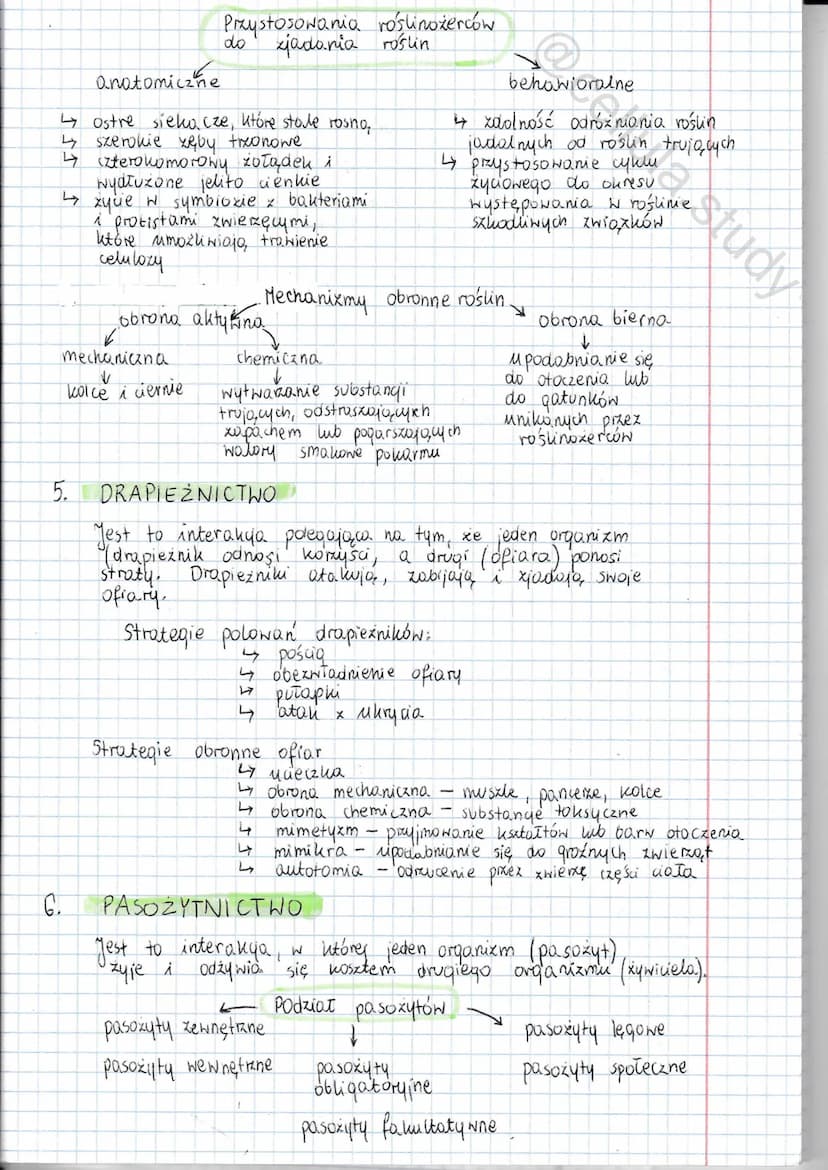 Przystosowania roślinożerców
do zjadania roślin
anatomiczne
↳ ostre siekacze, które stale rosną,
↳ szerokie zęby trzonowe
↳ czterokomorowy żołądek i
wydłużone jelito cienkie
↳ życie w symbiozie z bakteriami
i protistami zwierzęcymi,
które umożliwiają trawienie
celulozy
behawioralne
↳ zdolność odróżniania roślin
jadalnych od roślin trujących
↳ przystosowanie cyklu
życiowego do okresu
występowania w roślinie
szkodliwych związków
@cellula.study
Mechanizmy obronne roślin
obrona aktywna
mechaniczna
kolce i ciernie
chemiczna
wytwarzanie substancji
trujących, odstraszających
zapachem lub pogarszających
walory smakowe pokarmu
obrona bierna
upodabnianie się
do otoczenia lub
do gatunków
unikanych przez
roślinożerców
5. DRAPIEŻNICTWO
Jest to interakcja polegająca na tym, że jeden organizm
(drapieżnik odnosi korzyści, a drugi (ofiara) ponosi
straty. Drapieżniki atakują, zabijają i zjadają swoje
ofiary.
Strategie polowań drapieżników:
↳ pościg
↳ obezwładnienie ofiary
↳ pułapki
↳ atak z ukrycia
Strategie obronne ofiar
↳ ucieczka
↳ obrona mechaniczna – muszle, pancerze, kolce
↳ obrona chemiczna – substancje toksyczne
↳ mimetyzm – przyjmowanie kształtów lub barw otoczenia
↳ mimikra – upodabnianie się do groźnych zwierząt
↳ autotomia – odrzucenie przez zwierzę części ciała
6. PASOŻYTNICTWO
Jest to interakcja, w której jeden organizm (pasożyt)
żyje i odżywia się kosztem drugiego organizmu (żywiciela).
Podział pasożytów
pasożyty zewnętrzne
pasożyty wewnętrzne
pasożyty
obligatoryjne
pasożyty fakultatywne
pasożyty lęgowe
pasożyty społeczne